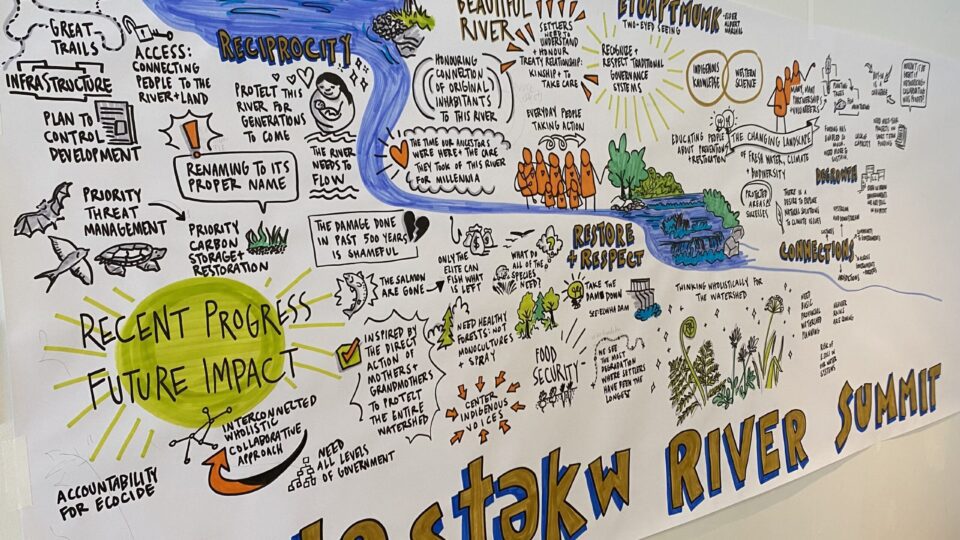 GREAT
TRAILS
INFRASTRUCTURE
ACCESS:
CONNECTING
PEOPLE TO THE
RIVER + LAND
PLAN TO
CONTROL
DEVELOPMENT
RENAMING TO ITS
PROPER NAME
PRIORITY
THREAT
MANAGEMENT
PRIORITY
CARBON
STORAGE +
RESTORATION
RECENT PROGRESS
FUTURE IMPACT
INTERCONNECTED
WHOLISTIC
COLLABORATIVE
APPROACH
ACCOUNTABILITY
FOR ECOCIDE
NEED
ALL LEVELS
OF GOVERNMENT
RECIPROCITY
PROTECT THIS
RIVER FOR
GENERATIONS
TO COME
THE RIVER
NEEDS TO
FLOW
THE DAMAGE DONE
IN PAST 500 YEARS
IS SHAMEFUL
THE SALMON
ARE GONE
ONLY THE
ELITE CAN
FISH WHAT
IS LEFT
INSPIRED BY
THE DIRECT
ACTION OF
MOTHERS +
GRANDMOTHERS
TO PROTECT
THE ENTIRE
WATERSHED
BEAUTIFUL
RIVER
SETTLERS
NEED TO
UNDERSTAND
+ HONOUR
TREATY RELATIONSHIP:
KINSHIP + TO
TAKE CARE
HONOURING
CONNECTION
OF ORIGINAL
INHABITANTS
TO THIS RIVER
THE TIME OUR ANCESTORS
WERE HERE + THE CARE
THEY TOOK OF THIS RIVER
FOR MILLENNIA
EVERYDAY PEOPLE
TAKING ACTION
WHAT DO
ALL OF THE
SPECIES
NEED?
NEED HEALTHY
FORESTS: NOT
MONOCULTURES
+ SPRAY
CENTER
INDIGENOUS
VOICES
FOOD
SECURITY
RESTORE
+ RESPECT
TAKE THE
DAMB DOWN
WE SEE
THE MOST
DEGRADATION
WHERE SETTLERS
HAVE BEEN THE
LONGEST
ETUAPTMUMK
TWO-EYED SEEING
-ELDER
ALBERT
MARSHALL
RECOGNIZE +
RESPECT TRADITIONAL
GOVERNANCE
SYSTEMS
INDIGENOUS
KNOWLEDGE
WESTERN
SCIENCE
MANY, MANY
PARTNERSHIPS
+ VOLUNTEERS
EDUCATING PEOPLE
ABOUT PREVENTIONS
+ RESTORATION
THE CHANGING LANDSCAPE
OF FRESH WATER, CLIMATE
+ BIODIVERSITY
PLANTING
TREES
PROTECTED
AREAS
SUCCESSES
THERE IS A
DESIRE TO EXPLORE
NATURAL SOLUTIONS
TO CLIMATE ISSUES
DEGROWTH
CONNECTIONS
THINKING WHOLISTICALLY FOR
THE WATERSHED
RIVER SUMMIT